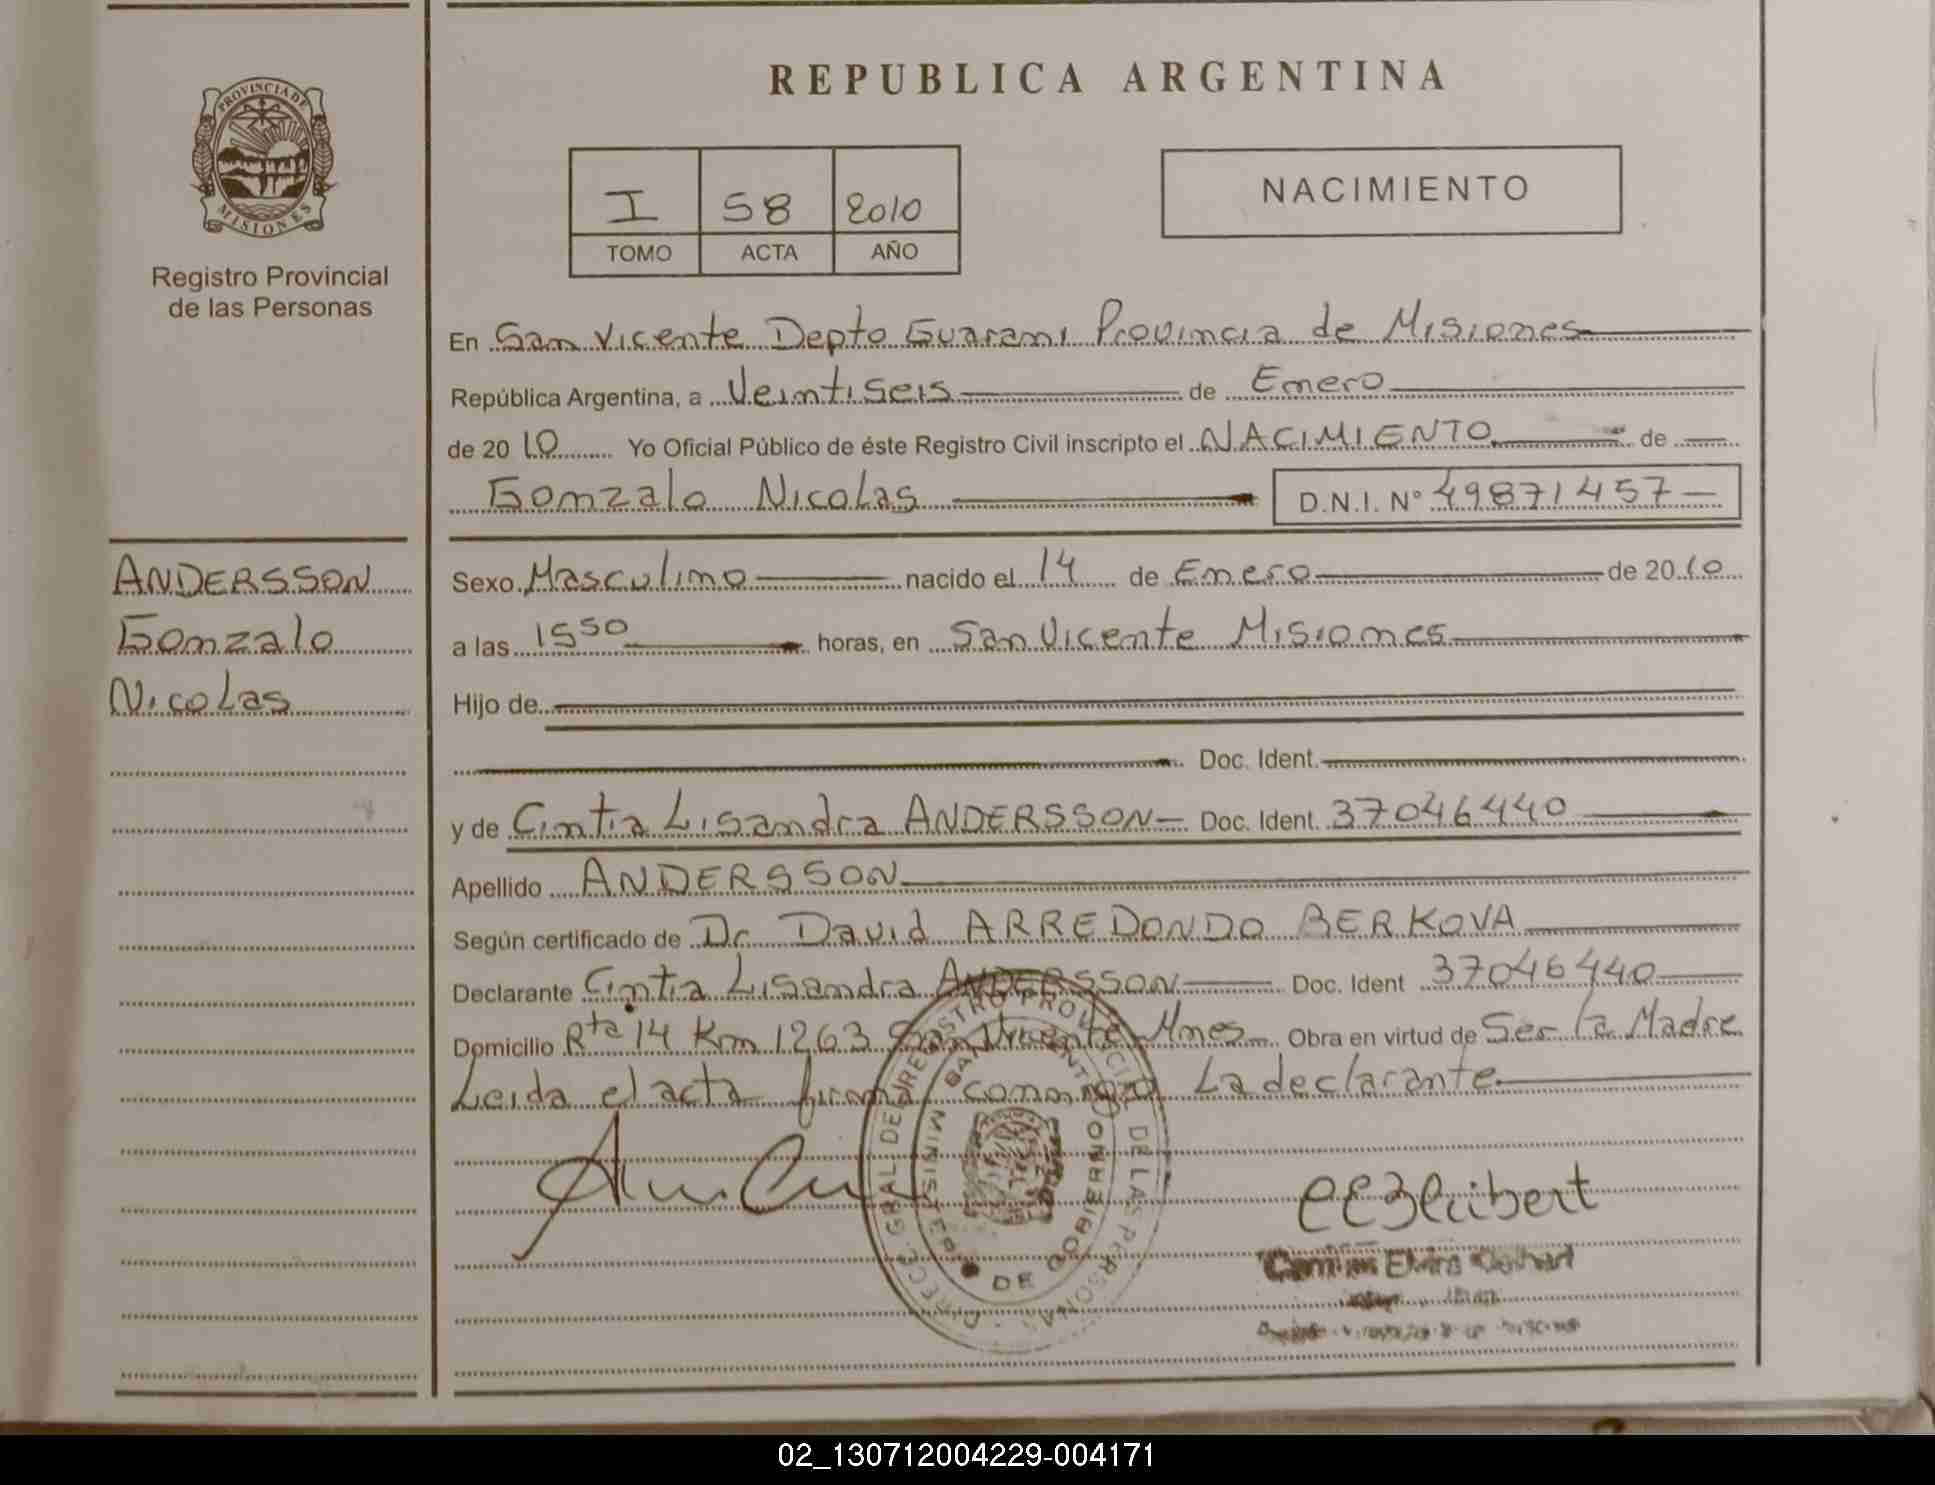 PROVINCIA DE
MISIONES
Registro Provincial
de las Personas
ANDERSSON
Gonzalo
Nicolas
REPUBLICA ARGENTINA
I 58 2010
TOMO ACTA AÑO
NACIMIENTO
En San Vicente Depto Guarani Provincia de Misiones
República Argentina, a Veintiseis de Enero
de 2010 Yo Oficial Público de éste Registro Civil inscripto el NACIMIENTO de
Gonzalo Nicolas D.N.I. N° 49871457
Sexo Masculino nacido el 14 de Enero de 2010
a las 1550 horas, en San Vicente Misiones
Hijo de
Doc. Ident.
y de Cintia Lisandra ANDERSSON Doc. Ident. 37046440
Apellido ANDERSSON
Según certificado de Dr David ARREDONDO BERKOVA
Declarante Cintia Lisandra ANDERSSON Doc. Ident 37046440
Domicilio Rta 14 Km 1263 San Vicente Mnes Obra en virtud de Ser la Madre
Leida el acta firma conmigo La declarante
DE LAS PERSONAS
DE GOBIERNO
02_130712004229-004171